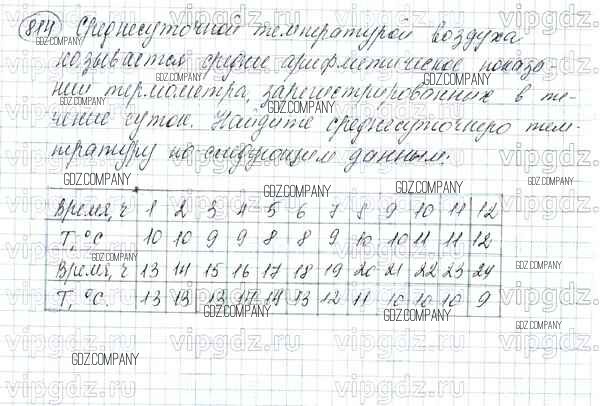 814 Среднесуточной температурой воздуха
называется среднее арифметическое показа-
ний термометра, зарегистрированных в те-
чение суток. Найдите среднесуточную тем-
пературу по следующим данным:
Время, ч 1 2 3 4 5 6 7 8 9 10 11 12
T, °C 10 10 9 9 8 8 9 10 10 11 11 12
Время, ч 13 14 15 16 17 18 19 20 21 22 23 24
T, °C. 13 13 13 14 14 13 12 11 10 10 10 9
GDZ.COMPANY
vipgdz.ru